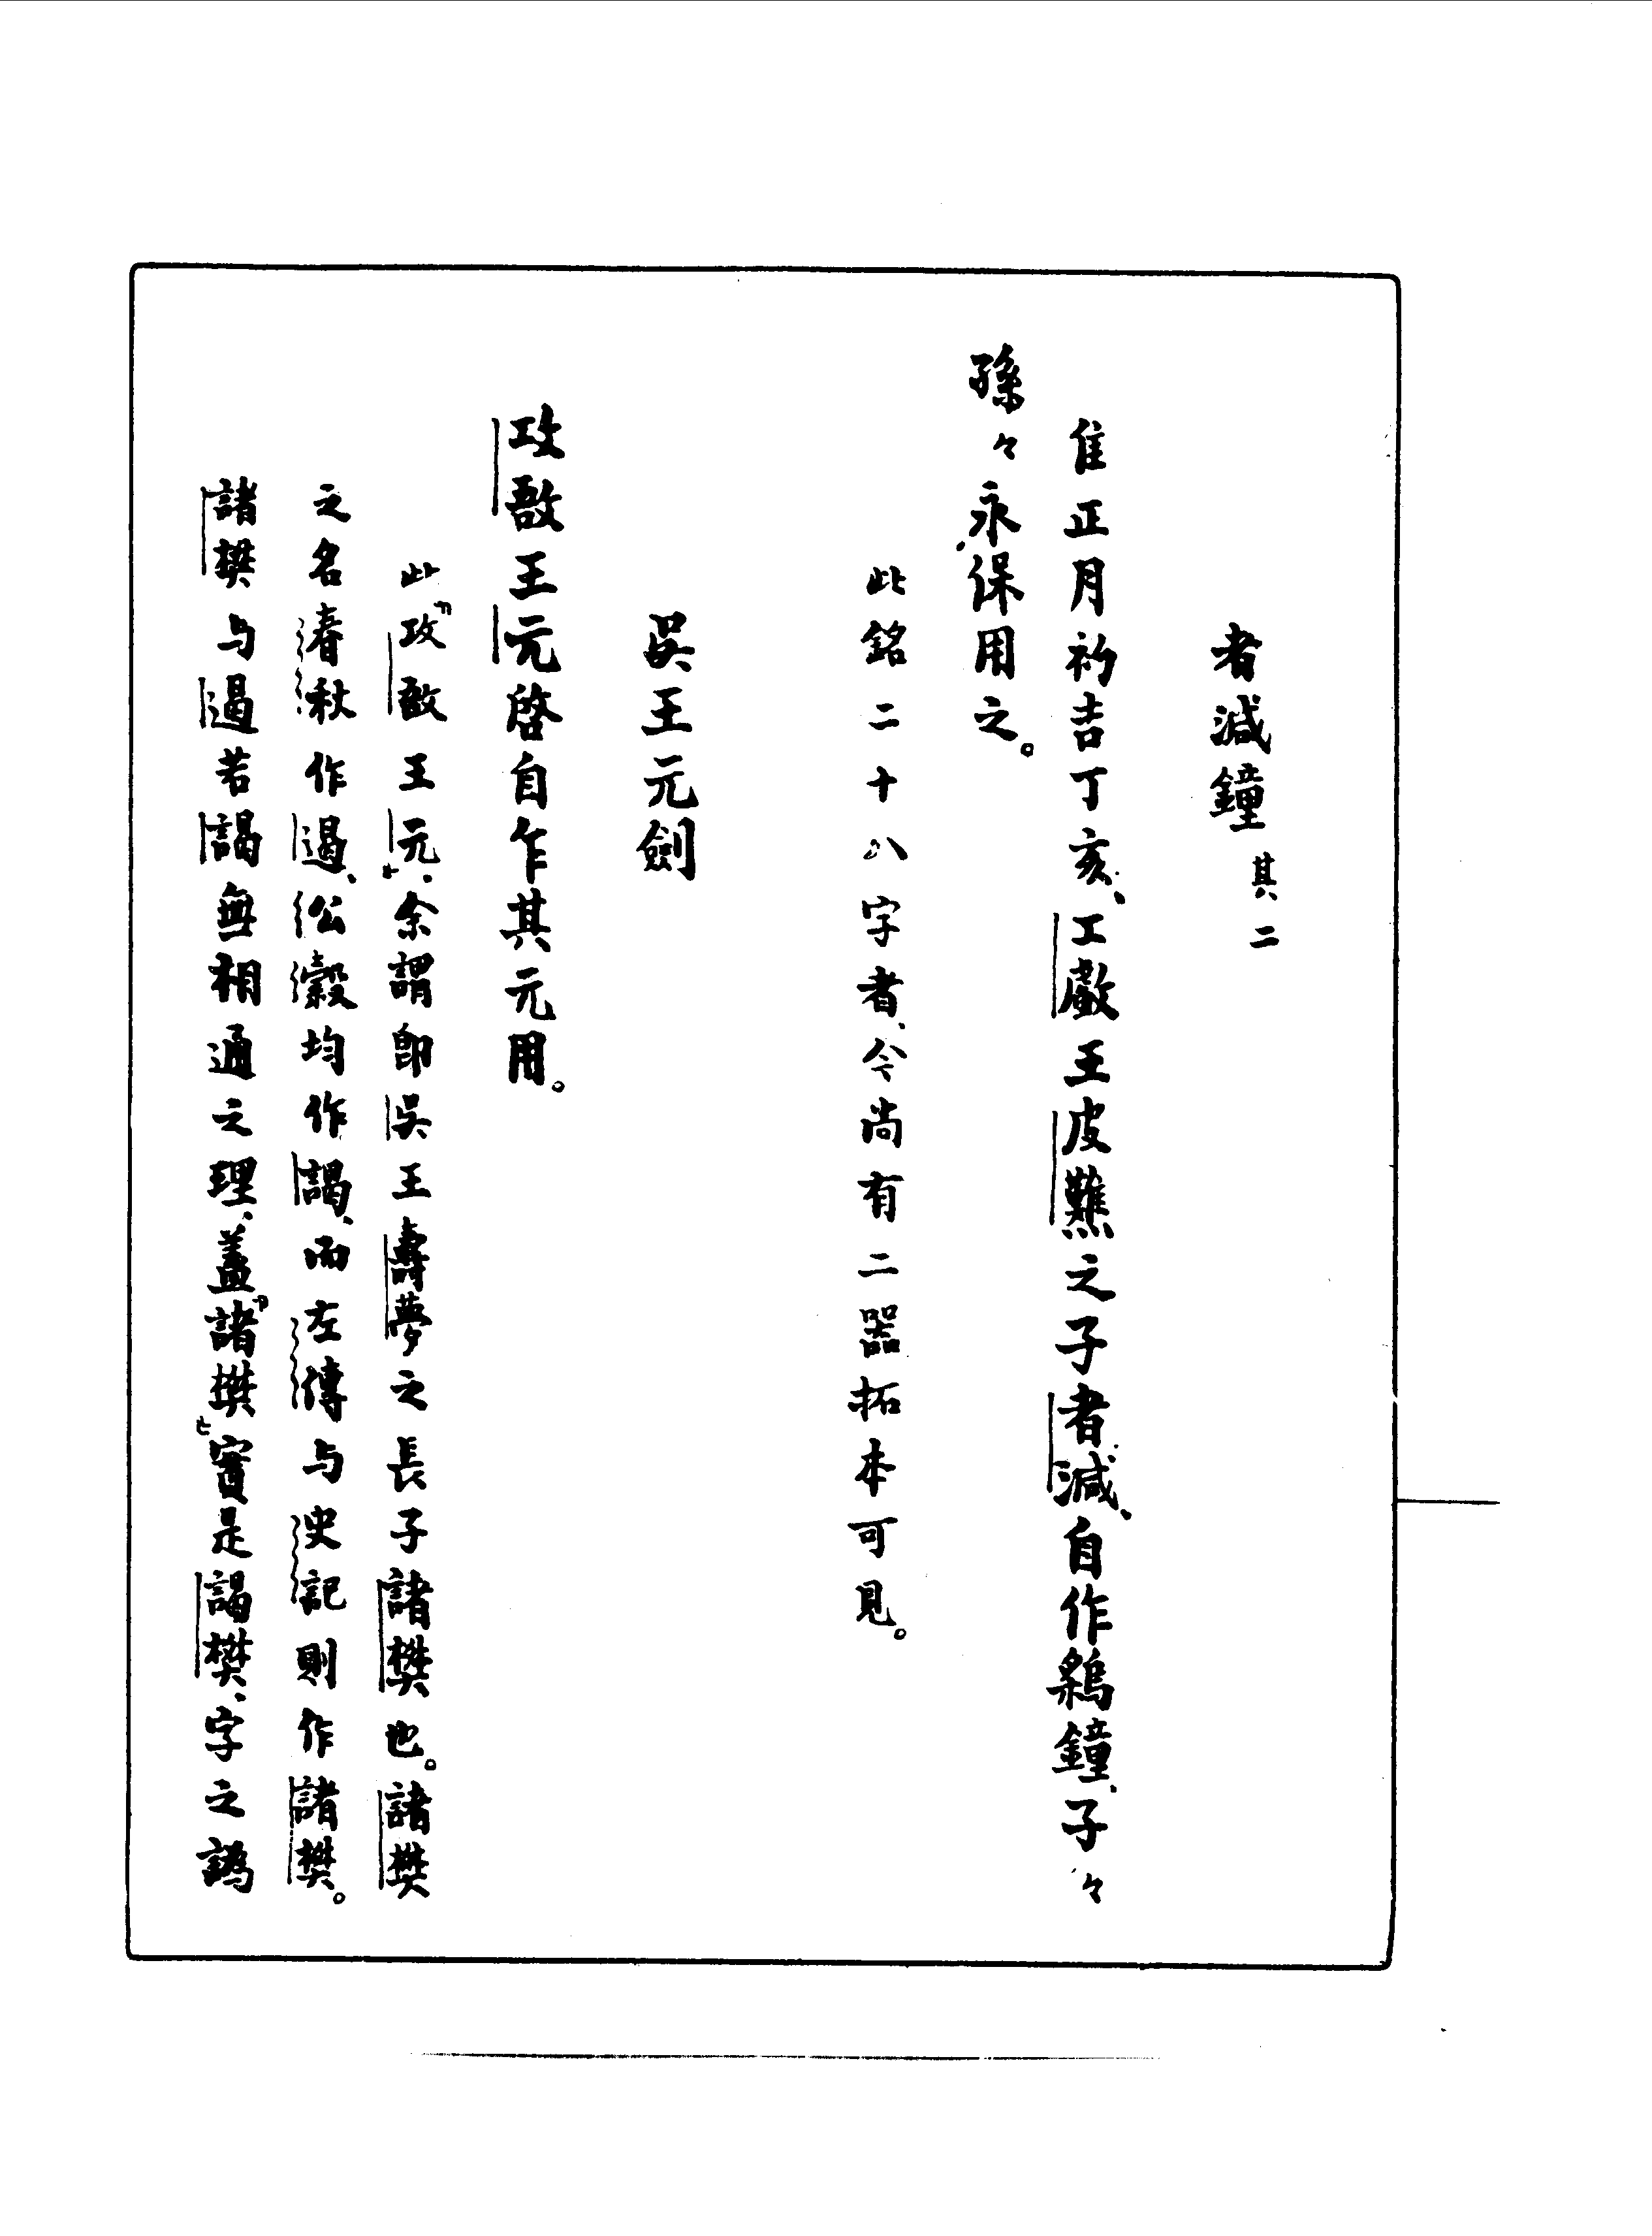 者減鐘 其二
隹正月初吉丁亥、工王皮之子者減、自作鐘、子々
孫々永保用之。
此銘二十八字者、今尚有二器拓本可見。
吳王元劍
攻敔王元啓自乍其元用。
此「攻敔王元」、余謂即吳王壽夢之長子諸樊也。諸樊
之名春秋作遏、公穀均作謁、而左傳与史記則作諸樊。
諸樊与遏若謁無相通之理、蓋「諸樊」實是謁樊、字之譌